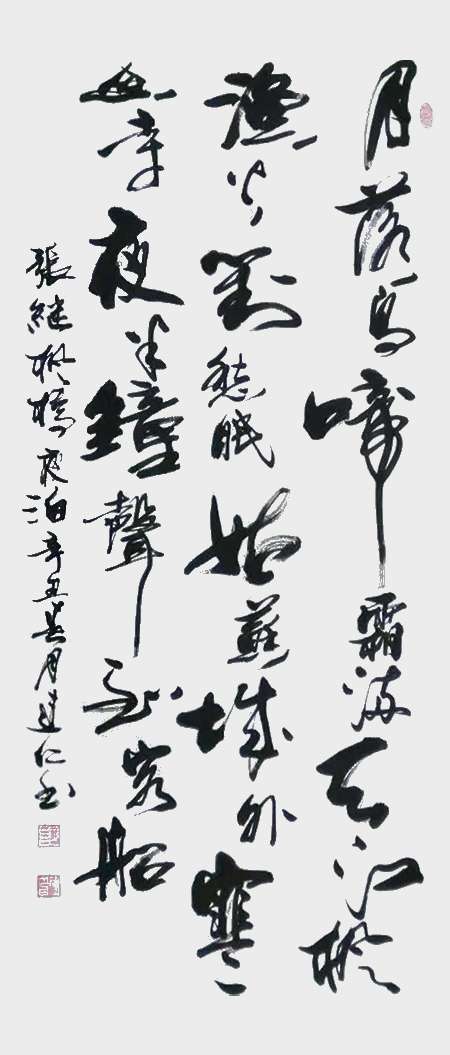 月落烏啼霜滿天江楓
漁火對愁眠姑蘇城外寒
山寺夜半鐘聲到客船
張继楓橋夜泊辛丑月仁书